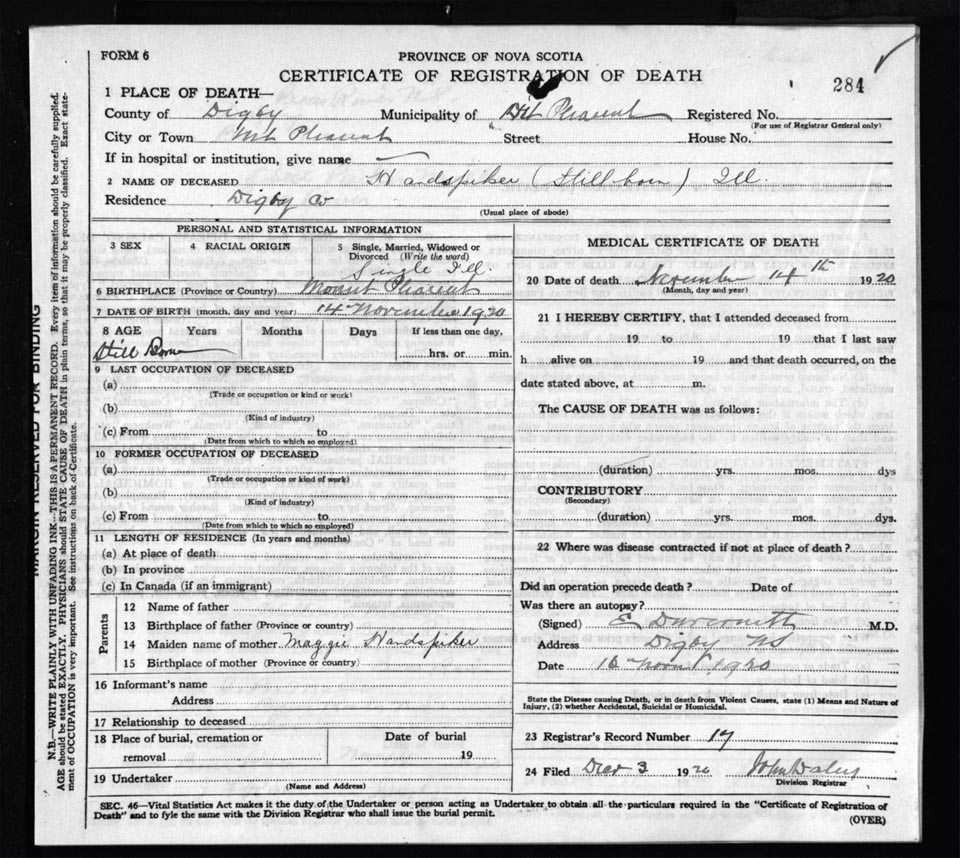 FORM 6
PROVINCE OF NOVA SCOTIA
CERTIFICATE OF REGISTRATION OF DEATH
284
1 PLACE OF DEATH—
County of Digby Municipality of Mt Pleasent Registered No.
(For use of Registrar General only)
City or Town Mt Pleasent Street House No.
If in hospital or institution, give name —
2 NAME OF DECEASED Handspiker (Still-born) Ill.
Residence Digby Co
(Usual place of abode)
PERSONAL AND STATISTICAL INFORMATION
3 SEX
4 RACIAL ORIGIN
5 Single, Married, Widowed or Divorced (Write the word)
Single Ill.
6 BIRTHPLACE (Province or Country) Mount Pleasent
7 DATE OF BIRTH (month, day and year) 14 November 1920
8 AGE Years Months Days If less than one day,
Still Born hrs. or min.
9 LAST OCCUPATION OF DECEASED
(a)
(Trade or occupation or kind or work)
(b)
(Kind of industry)
(c) From to
(Date from which to which so employed)
10 FORMER OCCUPATION OF DECEASED
(a)
(Trade or occupation or kind of work)
(b)
(Kind of industry)
(c) From to
(Date from which to which so employed)
11 LENGTH OF RESIDENCE (In years and months)
(a) At place of death
(b) In province
(c) In Canada (if an immigrant)
Parents
12 Name of father
13 Birthplace of father (Province or country)
14 Maiden name of mother Maggie Handspiker
15 Birthplace of mother (Province or country)
16 Informant's name
Address
17 Relationship to deceased
18 Place of burial, cremation or removal
Date of burial
19
19 Undertaker
(Name and Address)
MEDICAL CERTIFICATE OF DEATH
20 Date of death November 14th 1920
(Month, day and year)
21 I HEREBY CERTIFY, that I attended deceased from
19 to 19 that I last saw
h alive on 19 and that death occurred, on the
date stated above, at m.
The CAUSE OF DEATH was as follows:
(duration) yrs. mos. dys
CONTRIBUTORY
(Secondary)
(duration) yrs. mos. dys.
22 Where was disease contracted if not at place of death?
Did an operation precede death? Date of
Was there an autopsy?
(Signed) E M.D.
Address Digby NS
Date 16 1920
State the Disease causing Death, or in death from Violent Causes, state (1) Means and Nature of
Injury, (2) whether Accidental, Suicidal or Homicidal.
23 Registrar's Record Number 17
24 Filed Decr 3 1920 John Daley
Division Registrar
SEC. 46—Vital Statistics Act makes it the duty of the Undertaker or person acting as Undertaker to obtain all the particulars required in the "Certificate of Registration of
Death" and to fyle the same with the Division Registrar who shall issue the burial permit.
(OVER)
MARGIN RESERVED FOR BINDING
N.B.—WRITE PLAINLY WITH UNFADING INK—THIS IS A PERMANENT RECORD. Every item of information should be carefully supplied.
AGE should be stated EXACTLY. PHYSICIANS should STATE CAUSE OF DEATH in plain terms, so that it may be properly classified. Exact state-
ment of OCCUPATION is very important. See instructions on back of Certificate.